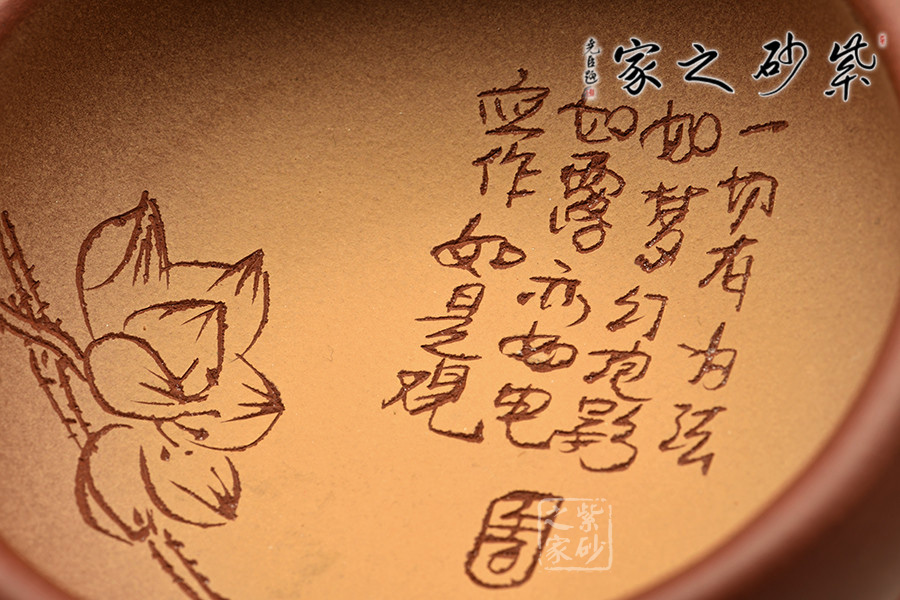 紫砂之家
一切有为法
如梦幻泡影
如露亦如电
应作如是观
紫砂之家